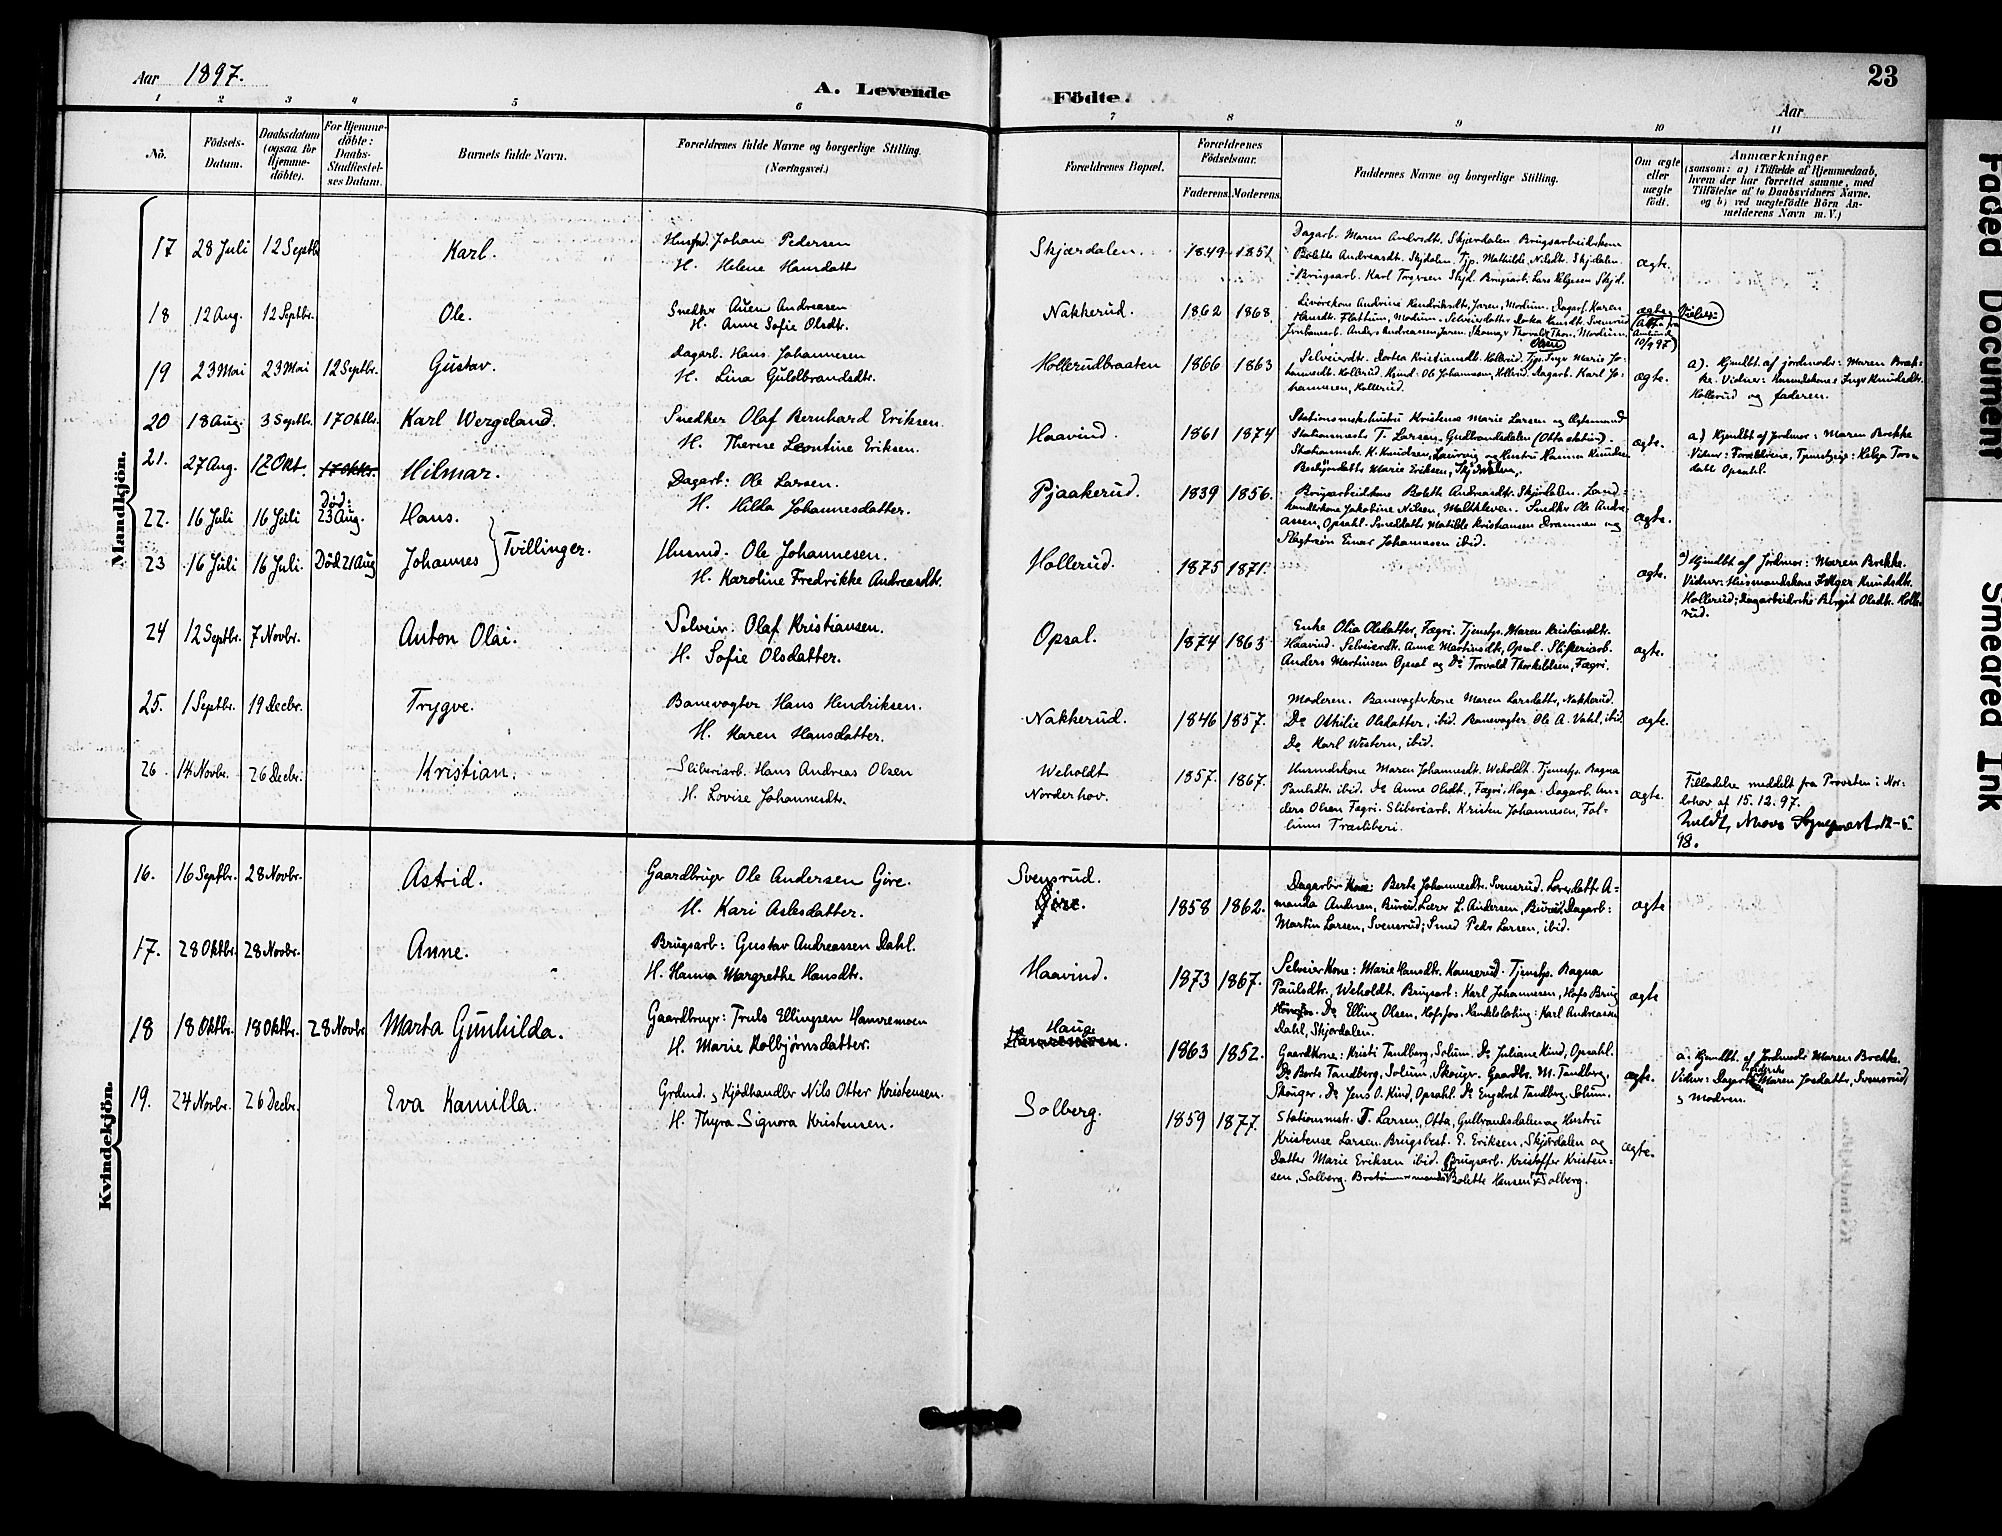 Aar 1897.
A. Levende Födte.
23
Aar
1 2 3 4 5 6 7 8 9 10 11
No.
Födsels-Datum.
Daabsdatum (ogsaa for Hjemme-döbte).
For Hjemme-döbte: Daabs-Stadfæstel-ses Datum.
Barnets fulde Navn.
Forældrenes fulde Navne og borgerlige Stilling. (Næringsvei.)
Forældrenes Bopæl.
Forældrenes Födselsaar.
Faderens. Moderens.
Faddernes Navne og borgerlige Stilling.
Om ægte eller uægte födt.
Anmærkninger
(saasom: a) i Tilfælde af Hjemmedaab,
hvem der har forrettet samme, med
Tilföielse af to Daabsvidners Navne.
og b) ved uægtefödte Börn An-
melderens Navn m. V.)
Mandkjön.
17 28 Juli 12 Septb. Karl.
Husmd. Johan Pedersen
H. Helene Hansdatt
Skjærdalen. 1849 1851
Dagarb. Maren Andrsdt. Skjærdalen. Brugsarbeiderkone
Bolette Andreasdt. Skjdalen. Tjp. Mathilde Nilsdt. Skjdalen.
Brugsarb. Karl Torgersen Skjd. Brugsarb. Lars Helgesen Skjd.
ægte.
18 12 Aug. 12 Septbr. Ole.
Snedker Auen Andreasen
H. Anne Sofie Olsdtr.
Nakkerud. 1862 1868.
Hansdt. Flattum, Modum.
ægte.
(Att. fra
10/9 97)
19 23 Mai 23 Mai 12 Septbr. Gustav.
Dagarb. Hans Johannesen
H. Lina Guldbrandsdtr.
Hollerudbraaten 1866 1863
Selveierdt. Dortea Kristiansdt. Hollerud. Tjp. Inger Marie Jo-
hannesdt. Hollerud. Kjmd. Ole Johannesen, Hollerud. Dagarb. Karl Jo-
hannesen, Hollerud.
ægte.
a). Hjmdbt. af jordmoder: Maren Bræk-
ke. Vidner: Husmdskone Inger Knudsdt.
Hollerud og faderen.
20 18 Aug. 3 Septbr. 17 Oktbr. Karl Wergeland.
Snedker Olaf Bernhard Eriksen
H. Therese Leontine Eriksen.
Haavind. 1861 1874
Stationsmesterhustru Kristense Marie Larsen og Ægtemand
Stationsmester T. Larsen. Gulbrandsdalen (Otta station).
Stationsmstr. K. Knudsen, Laurvig og Hustru Hanna Knudsen
Marie Eriksen, Skjærdalen.
ægte.
a) Hjemdbt. af Jordmor: Maren Brekke
Vidner: Forældrene, Tjenestpige: Helga Tors-
datt Opsahl.
21. 27 Aug. 17 Okt. 17 Oktbr. Hilmar.
Dagarb: Ole Larsen.
H. Hilda Johannesdatter.
Pjaakerud. 1839 1856.
Brugsarbeiderkone Bolette Andreasdt. Skjærdalen. Land-
handlerkone Jakobine Nilsen, Malthleven. Snedker Ole Andre-
assen, Opsahl. Snedkerdatter Matilde Kristiansen Drammen og
Einar Johannesen ibid.
ægte.
22. 16 Juli 16 Juli Død: 23 Aug. Hans.
23 16 Juli 16 Juli. Død 21 Aug Johannes } Tvillinger.
Husmd. Ole Johannesen.
H. Karoline Fredrikke Andreasdt.
Hollerud. 1875 1871.
ægte.
a) Hjmdbt. af Jordmor: Maren Brekke.
Vidner: Husmandskone Inger Knudsdt.
Hollerud; Dagarbeiderske Birgit Olsdt. Holle-
rud.
24 12 Septbr. 7 Novbr. Anton Olai.
Selveier. Olaf Kristiansen.
H. Sofie Olsdatter.
Opsal. 1874 1863
Enke Olia Olsdatter, Fægri. Tjenstp. Maren Kristiansdt.
Haavind. Selveierdt. Anne Martinsdt, Opsal. Sliberiarb.
Anders Martinsen Opsal og Do Torvald Thorkildsen, Fægri.
ægte.
25. 1 Septbr. 19 Decbr. Trygve.
Banevogter Hans Hendriksen.
H. Karen Hansdatter.
Nakkerud. 1846 1857.
Moderen. Banevogterkone Maren Larsdatter, Nakkerud.
Do Othilie Olsdatter, ibid. Banevogter Ole A. Vahl, ibid.
Do Karl Western, ibid.
ægte.
26. 14 Novbr. 26 Decbr. Kristian.
Sliberiarb. Hans Andreas Olsen
H. Lovise Johannesdtr.
Weholdt
Norderhov. 1857. 1867.
Husmdskone Maren Johannesdt. Weholdt. Tjenestp. Ragna
Paulsdtr. ibid. Do Anne Olsdt., Fægri. Haga. Dagarb. An-
ders Olsen Fægri. Sliberiarb. Kristen Johannesen, Fol-
lums Træsliberi.
ægte.
Tilladelse meddelt fra Provsten i Nor-
derhov af 15.12.97.
98.
Kvindekjön.
16. 16 Septbr. 28 Novbr. Astrid.
Gaardbruger Ole Andersen Gjøre.
H. Kari Aslesdatter.
Svensrud.
1858 1862.
Dagarbr Kone: Berte Johannesdt. Svensrud. Lærerdatter A-
manda Andersen, Bureid. Lærer L. Andersen, Bureid. Dagarb:
Martin Larsen, Svensrud; Smed Peder Larsen, ibid.
ægte
17. 28 Oktbr. 28 Novbr. Anne.
Brugsarb: Gustav Andreassen Dahl.
H. Hanna Margrethe Hansdt.
Haavind. 1873 1867.
Selveier Kone: Marie Hansdt. Tjenestp. Ragna
Paulsdtr., Weholdt. Brugsarb: Karl Johannesen, Hofs Brug
Hønefos. Do Elling Olsen, Hofsfos. Karl Andreassen
Dahl, Skjærdalen.
ægte
18 18 Oktbr. 18 Oktbr. 28 Novbr Marta Gunhilda.
Gaardbruger: Truls Ellingsen Hamremoen
H. Marie Kolbjørnsdatter.
Hauge
Hamremoen. 1863 1852.
Gaardkone: Kristi Tandberg, Solum. Do Juliane Kind, Opsahl.
Do Berte Tandberg, Solum, Skouger. Gaardbr. M. Tandberg,
Skouger. Do Jens O. Kind, Opsahl. Do Engebret Tandberg, Solum.
ægte.
a. Hjmdbt. af Jordmoder Maren Brekke.
Vidner: Maren Josdatter, Svensrud,
og Modren.
19. 24 Novbr. 26 Decbr. Eva Kamilla.
Grdmd. og Kjødhandler Nils Otter Kristensen.
H. Thyra Signora Kristensen.
Solberg. 1859 1877.
Stationsmstr. T. Larsen, Otta, Gulbrandsdalen og Hustru
Kristense Larsen. Brugsbest. E. Eriksen, Skjærdalen og
Datter Marie Eriksen ibid. Brugsarb. Kristoffer Kristen-
sen, Solberg. Bolette Hansen Solberg.
ægte.
Faded Document
Smeared Ink